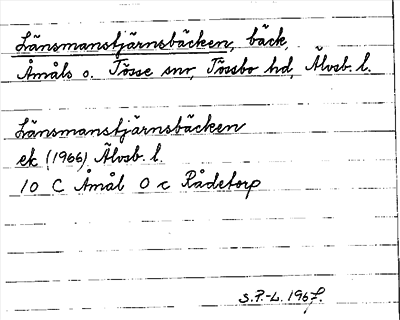 Länsmanstjärnsbäcken, bäck,
Åmåls o. Tösse snr, Tössbo hd, Älvsb. l.
Länsmanstjärnsbäcken
ek (1966) Älvsb. l.
10 C Åmål O c Rådetorp
S.P.-L. 1967.